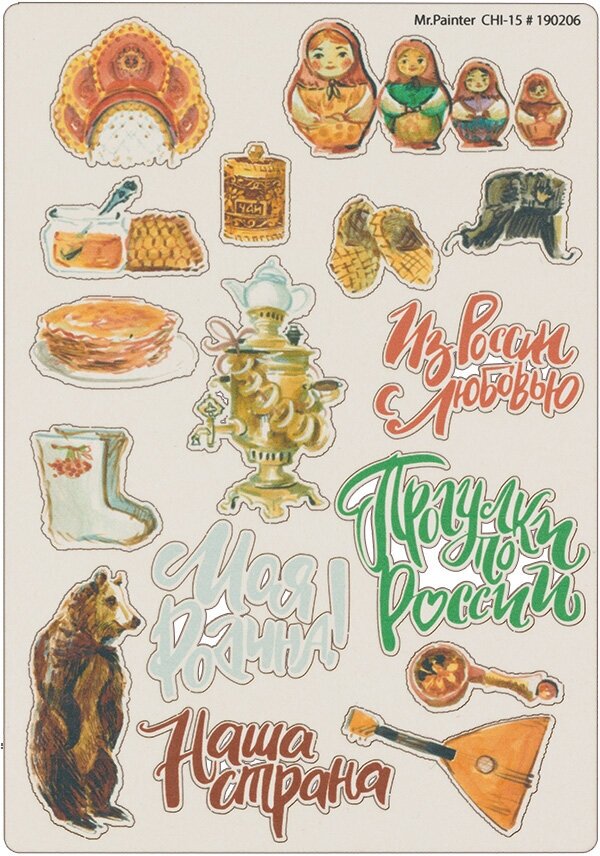 Mr.Painter CHI-15 # 190206
ЧАЙ
Из России
с Любовью
Прогулки
по
России
Моя
Родина!
Наша
страна